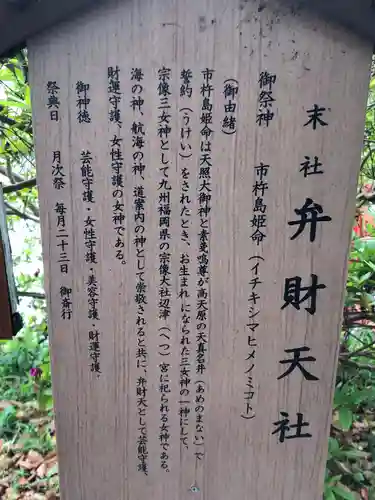 末社 弁財天社
御祭神 市杵島姫命(イチキシマヒメノミコト)
(御由緒)
市杵島姫命は天照大御神と素戔鳴尊が高天原の天真名井(あめのまない)で
誓約(うけい)をされたとき、お生まれになられた三女神の一神にして、
宗像三女神として九州福岡県の宗像大社辺津(へつ)宮に祀られる女神である。
海の神、航海の神、道案内の神として崇敬されると共に、弁財天として芸能守護、
財運守護、女性守護の女神である。
御神徳 芸能守護・女性守護・美容守護・財運守護、
祭典日 月次祭 毎月二十三日 御斎行